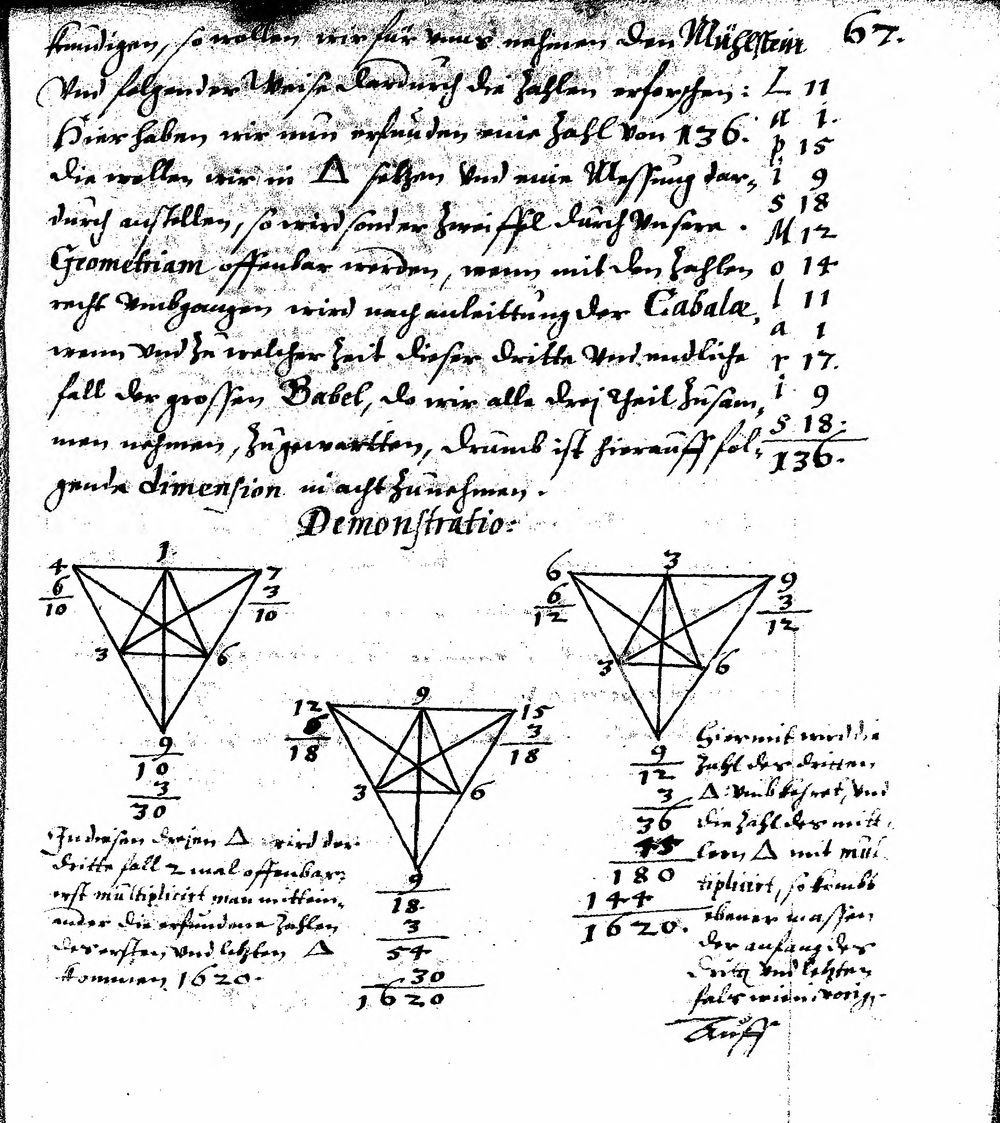 kundigen, so wollen wir für unns nehmen den Mühlstein
67.
Und folgender Weise dardurch die Zahlen erforschen:
Hier haben wir nun erfunden eine Zahl von 136.
die wollen wir in Δ setzen Und eine Messung dar-
durch anstellen, so wird sonder Zweiffel durch Unsere
Geometriam offenbar werden, wenn mit den Zahlen
recht Umbgangen wird nach anleittung der Cabalæ,
wenn Und Zu welcher Zeit dieser dritte Und endliche
fall der grossen Babel, do wir alle drej Theil Zusam-
men nehmen, Zugewartten, drumb ist hierauff fol-
gende dimension in acht Zunehmen.
L 11
a 1.
p. 15
i 9
S 18
M 12
o 14
l 11
a 1
r 17.
i 9
S 18:
136.
Demonstratio:
4 1. 7
6 3
10 10
3 6
9
10
3
30
6 3 9
6 3
12 12
3 6
9
12
3
36
45
180
144
1620.
12 9 15
6 3
18 18
3 6
9
18.
3
54
30
1620
In diesen drejen Δ wird der
dritte fall 2 mal offenbar:
erst multiplicirt man mittein-
ander die erfundene Zahlen
des ersten, Und letzten Δ
kommen 1620.
Hiermit wird die
Zahl des dritten
Δ Umbkehret, Und
die Zahl des mitt-
lern Δ mit mul
tiplicirt, so kombt
ebener massen
der anfang des
Und letzten
fals wie in vorig.
Auff